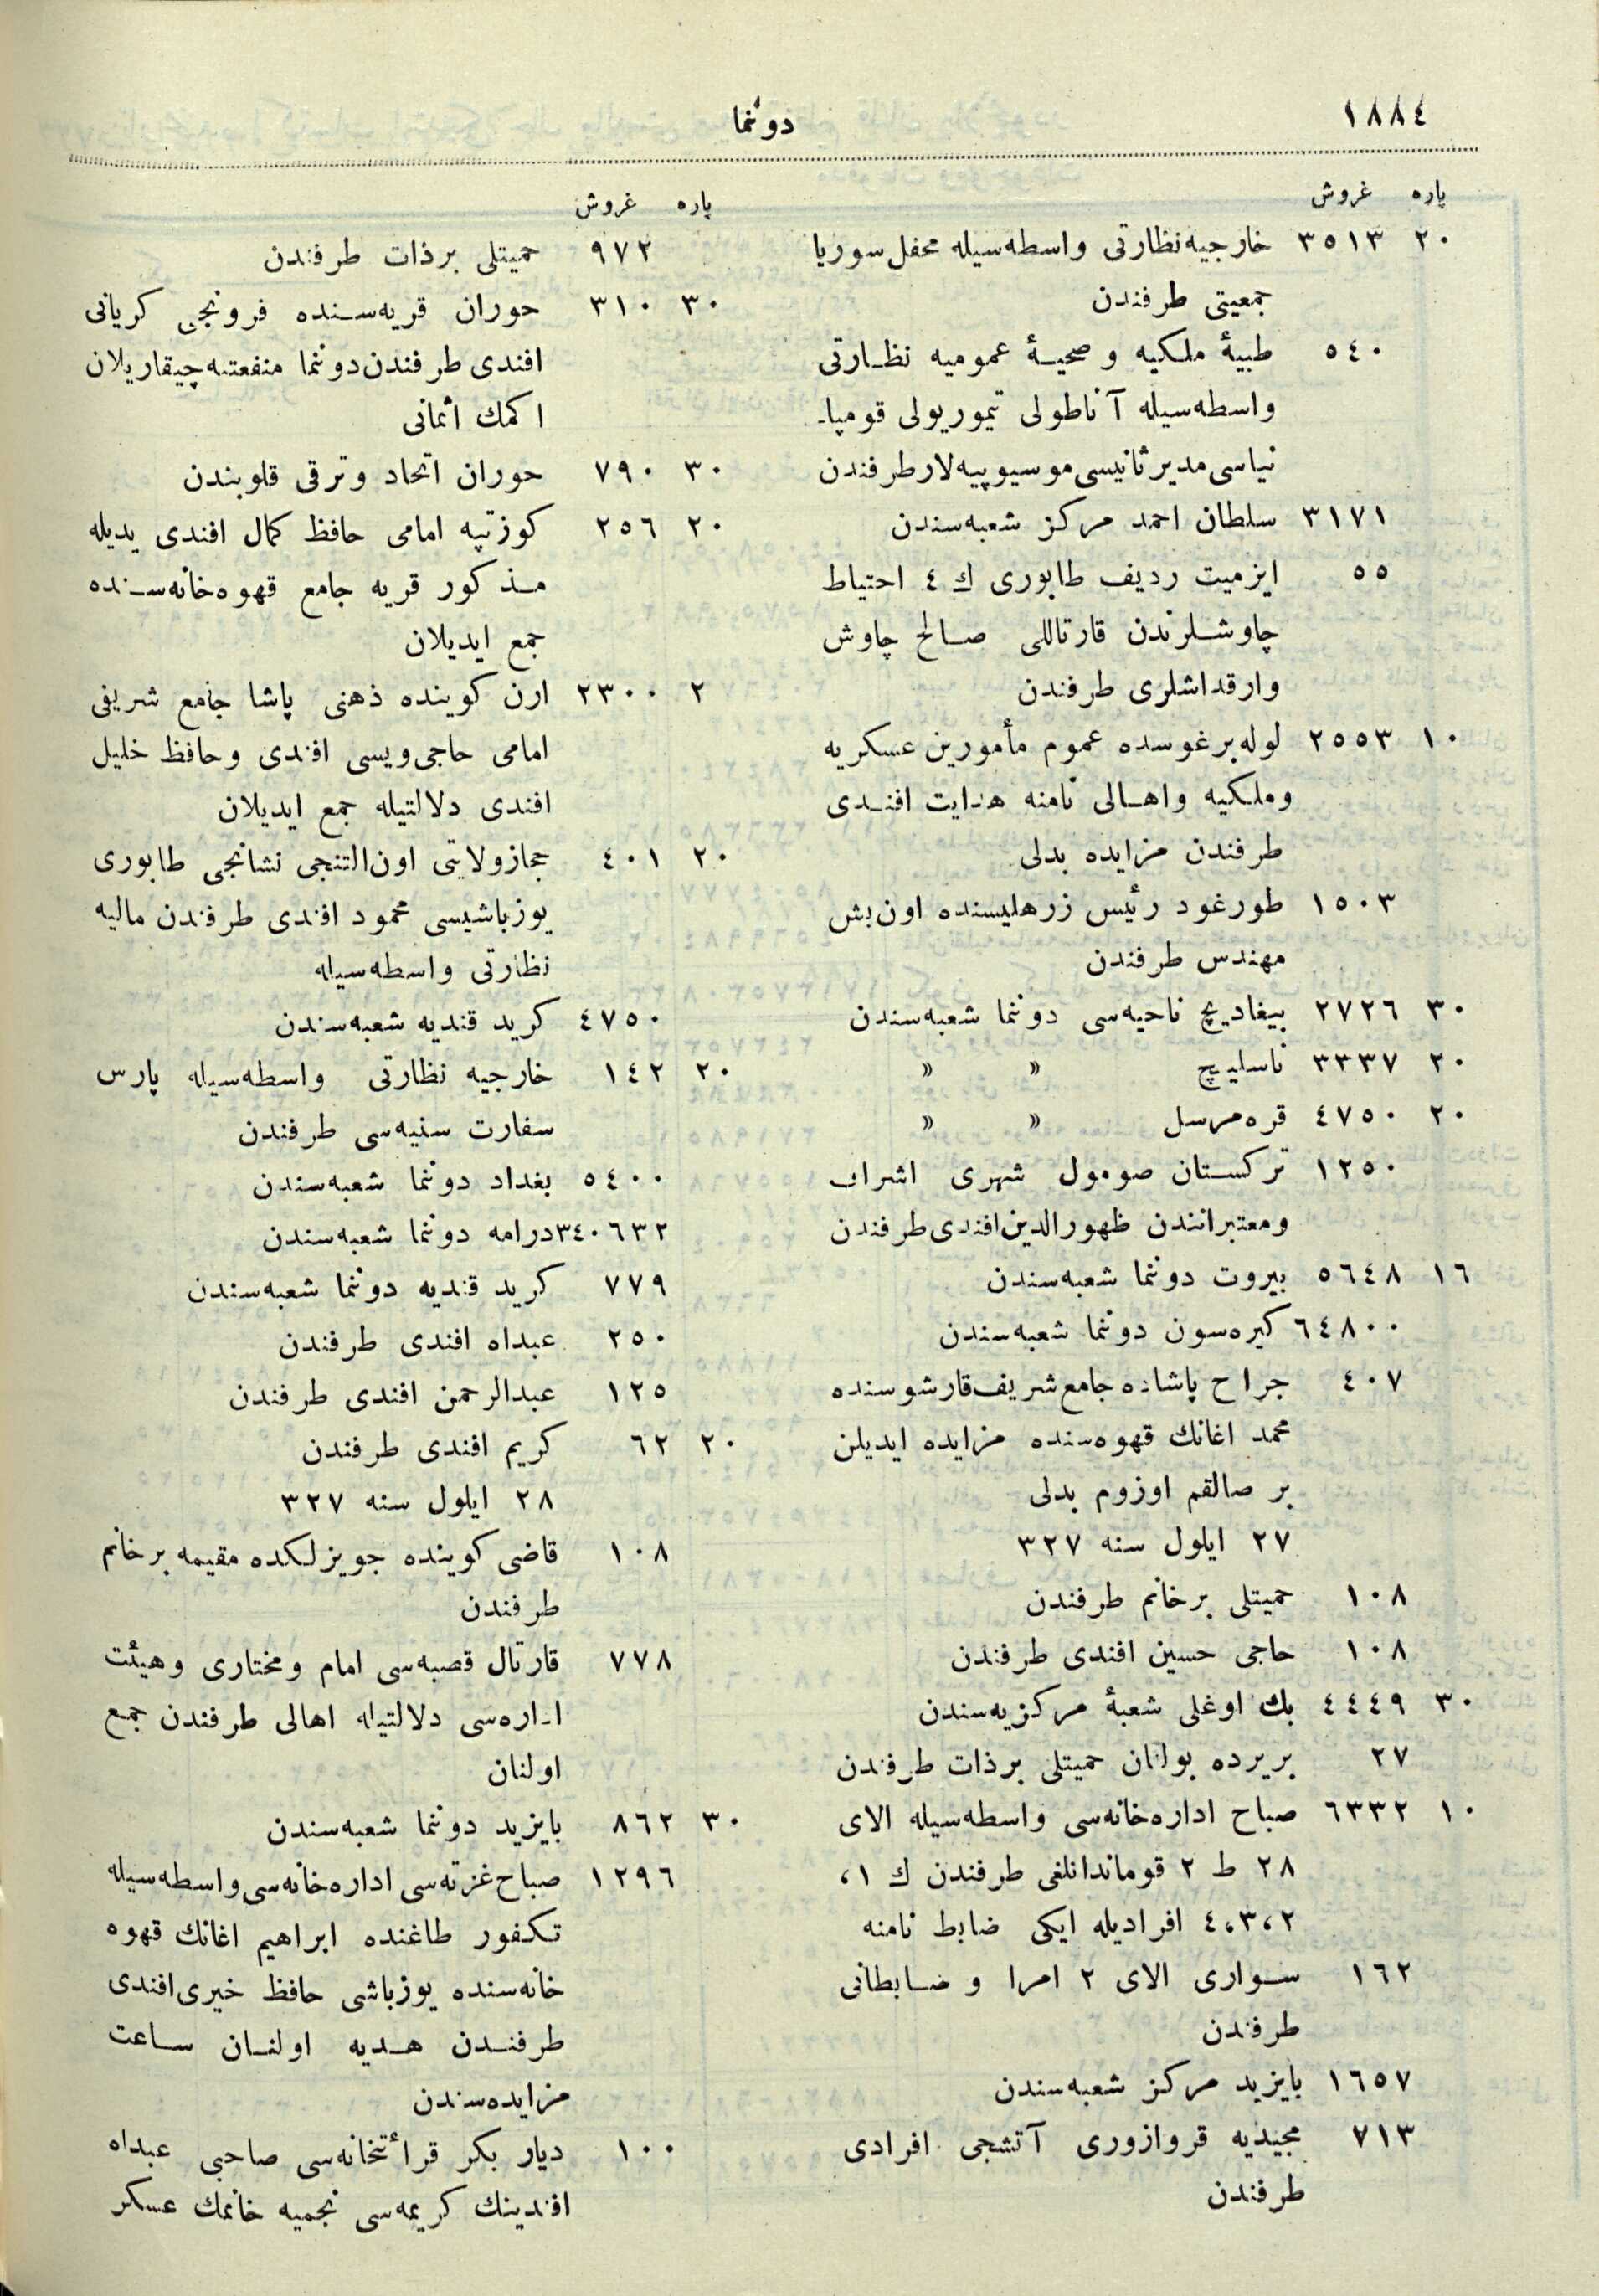 ١٨٨٤
دوننما
پاره غروش
٢٠ ٣٥١٣ خارجيه نظارتى واسطه‌سيله محفل سوريا
جمعيتى طرفندن
٥٤٠ طبيۀ ملكيه و صحيۀ عموميه نظارتى
واسطه‌سيله آناطولى تيموريولى قومپا-
نياسى مدير ثانيسى موسيو پيه‌لار طرفندن
٣١٧١ سلطان احمد مركز شعبه‌سندن
٥٥ ايزميت رديف طابورى ك ٤ احتياط
چاوشلرندن قارتاللى صالح چاوش
وارقداشلرى طرفندن
١٠ ٢٥٥٣ لوله‌برغوسده عموم مأمورين عسكريه
وملكيه واهالى نامنه هدايت افندى
طرفندن مزايده بدلى
١٥٠٣ طورغود رئيس زرهليسنده اون‌بش
مهندس طرفندن
٣٠ ٢٧٢٦ بيغاديچ ناحيه‌سى دوننما شعبه‌سندن
٢٠ ٣٣٣٧ ناسليچ » »
٢٠ ٤٧٥٠ قره‌مرسل » »
١٢٥٠ تركستان صومول شهرى اشراف
ومعتبرانندن ظهورالدين افندى طرفندن
١٦ ٥٦٤٨ بيروت دوننما شعبه‌سندن
٦٤٨٠٠ كيره‌سون دوننما شعبه‌سندن
٤٠٧ جراح پاشاده جامع شريف قارشوسنده
محمد اغانك قهوه‌سنده مزايده ايديلن
بر صالقم اوزوم بدلى
٢٧ ايلول سنه ٣٢٧
١٠٨ حميتلى برخانم طرفندن
١٠٨ حاجى حسين افندى طرفندن
٣٠ ٤٤٤٩ بك اوغلى شعبۀ مركزيه‌سندن
٢٧ بريرده بولنان حميتلى برذات طرفندن
١٠ ٦٣٣٢ صباح اداره‌خانه‌سى واسطه‌سيله الاى
٢٨ ط ٢ قوماندانلغى طرفندن ك ١،
٢،٣،٤ افراديله ايكى ضابط نامنه
١٦٢ سوارى الاى ٢ امرا و ضابطانى
طرفندن
١٦٥٧ بايزيد مركز شعبه‌سندن
٧١٣ مجيديه قروازورى آتشجى افرادى
طرفندن
پاره غروش
٩٧٢ حميتلى برذات طرفندن
٣٠ ٣١٠ حوران قريه‌سنده فرونجى كريانى
افندى طرفندن دوننما منفعتنه چيقاريلان
اكمك اثمانى
٣٠ ٧٩٠ حوران اتحاد وترقى قلوبندن
٢٠ ٢٥٦ كوزتپه امامى حافظ كمال افندى يديله
مذكور قريه جامع قهوه‌خانه‌سنده
جمع ايديلان
٢ ٢٣٠٠ ارن كوينده ذهنى پاشا جامع شريفى
امامى حاجى ويسى افندى وحافظ خليل
افندى دلالتيله جمع ايديلان
٢٠ ٤٠١ حجاز ولايتى اون‌التنجى نشانجى طابورى
يوزباشيسى محمود افندى طرفندن ماليه
نظارتى واسطه‌سيله
٤٧٥٠ كريد قنديه شعبه‌سندن
٢٠ ١٤٢ خارجيه نظارتى واسطه‌سيله پارس
سفارت سنيه‌سى طرفندن
٥٤٠٠ بغداد دوننما شعبه‌سندن
٣٤٠٦٣٢ درامه دوننما شعبه‌سندن
٧٧٩ كريد قنديه دوننما شعبه‌سندن
٢٥٠ عبدالله افندى طرفندن
١٢٥ عبدالرحمن افندى طرفندن
٢٠ ٦٢ كريم افندى طرفندن
٢٨ ايلول سنه ٣٢٧
١٠٨ قاضى كوينده جويزلكده مقيمه برخانم
طرفندن
٧٧٨ قارتال قصبه‌سى امام ومختارى وهيئت
اداره‌سى دلالتيله اهالى طرفندن جمع
اولنان
٣٠ ٨٦٢ بايزيد دوننما شعبه‌سندن
١٢٩٦ صباح غزته‌سى اداره‌خانه‌سى واسطه‌سيله
تكفور طاغنده ابراهيم اغانك قهوه
خانه‌سنده يوزباشى حافظ خيرى افندى
طرفندن هديه اولنان ساعت
مزايده‌سندن
١٠٠ ديار بكر قرأتخانه‌سى صاحبى عبدالله
افندينك كريمه‌سى نجميه خانمك عسكر